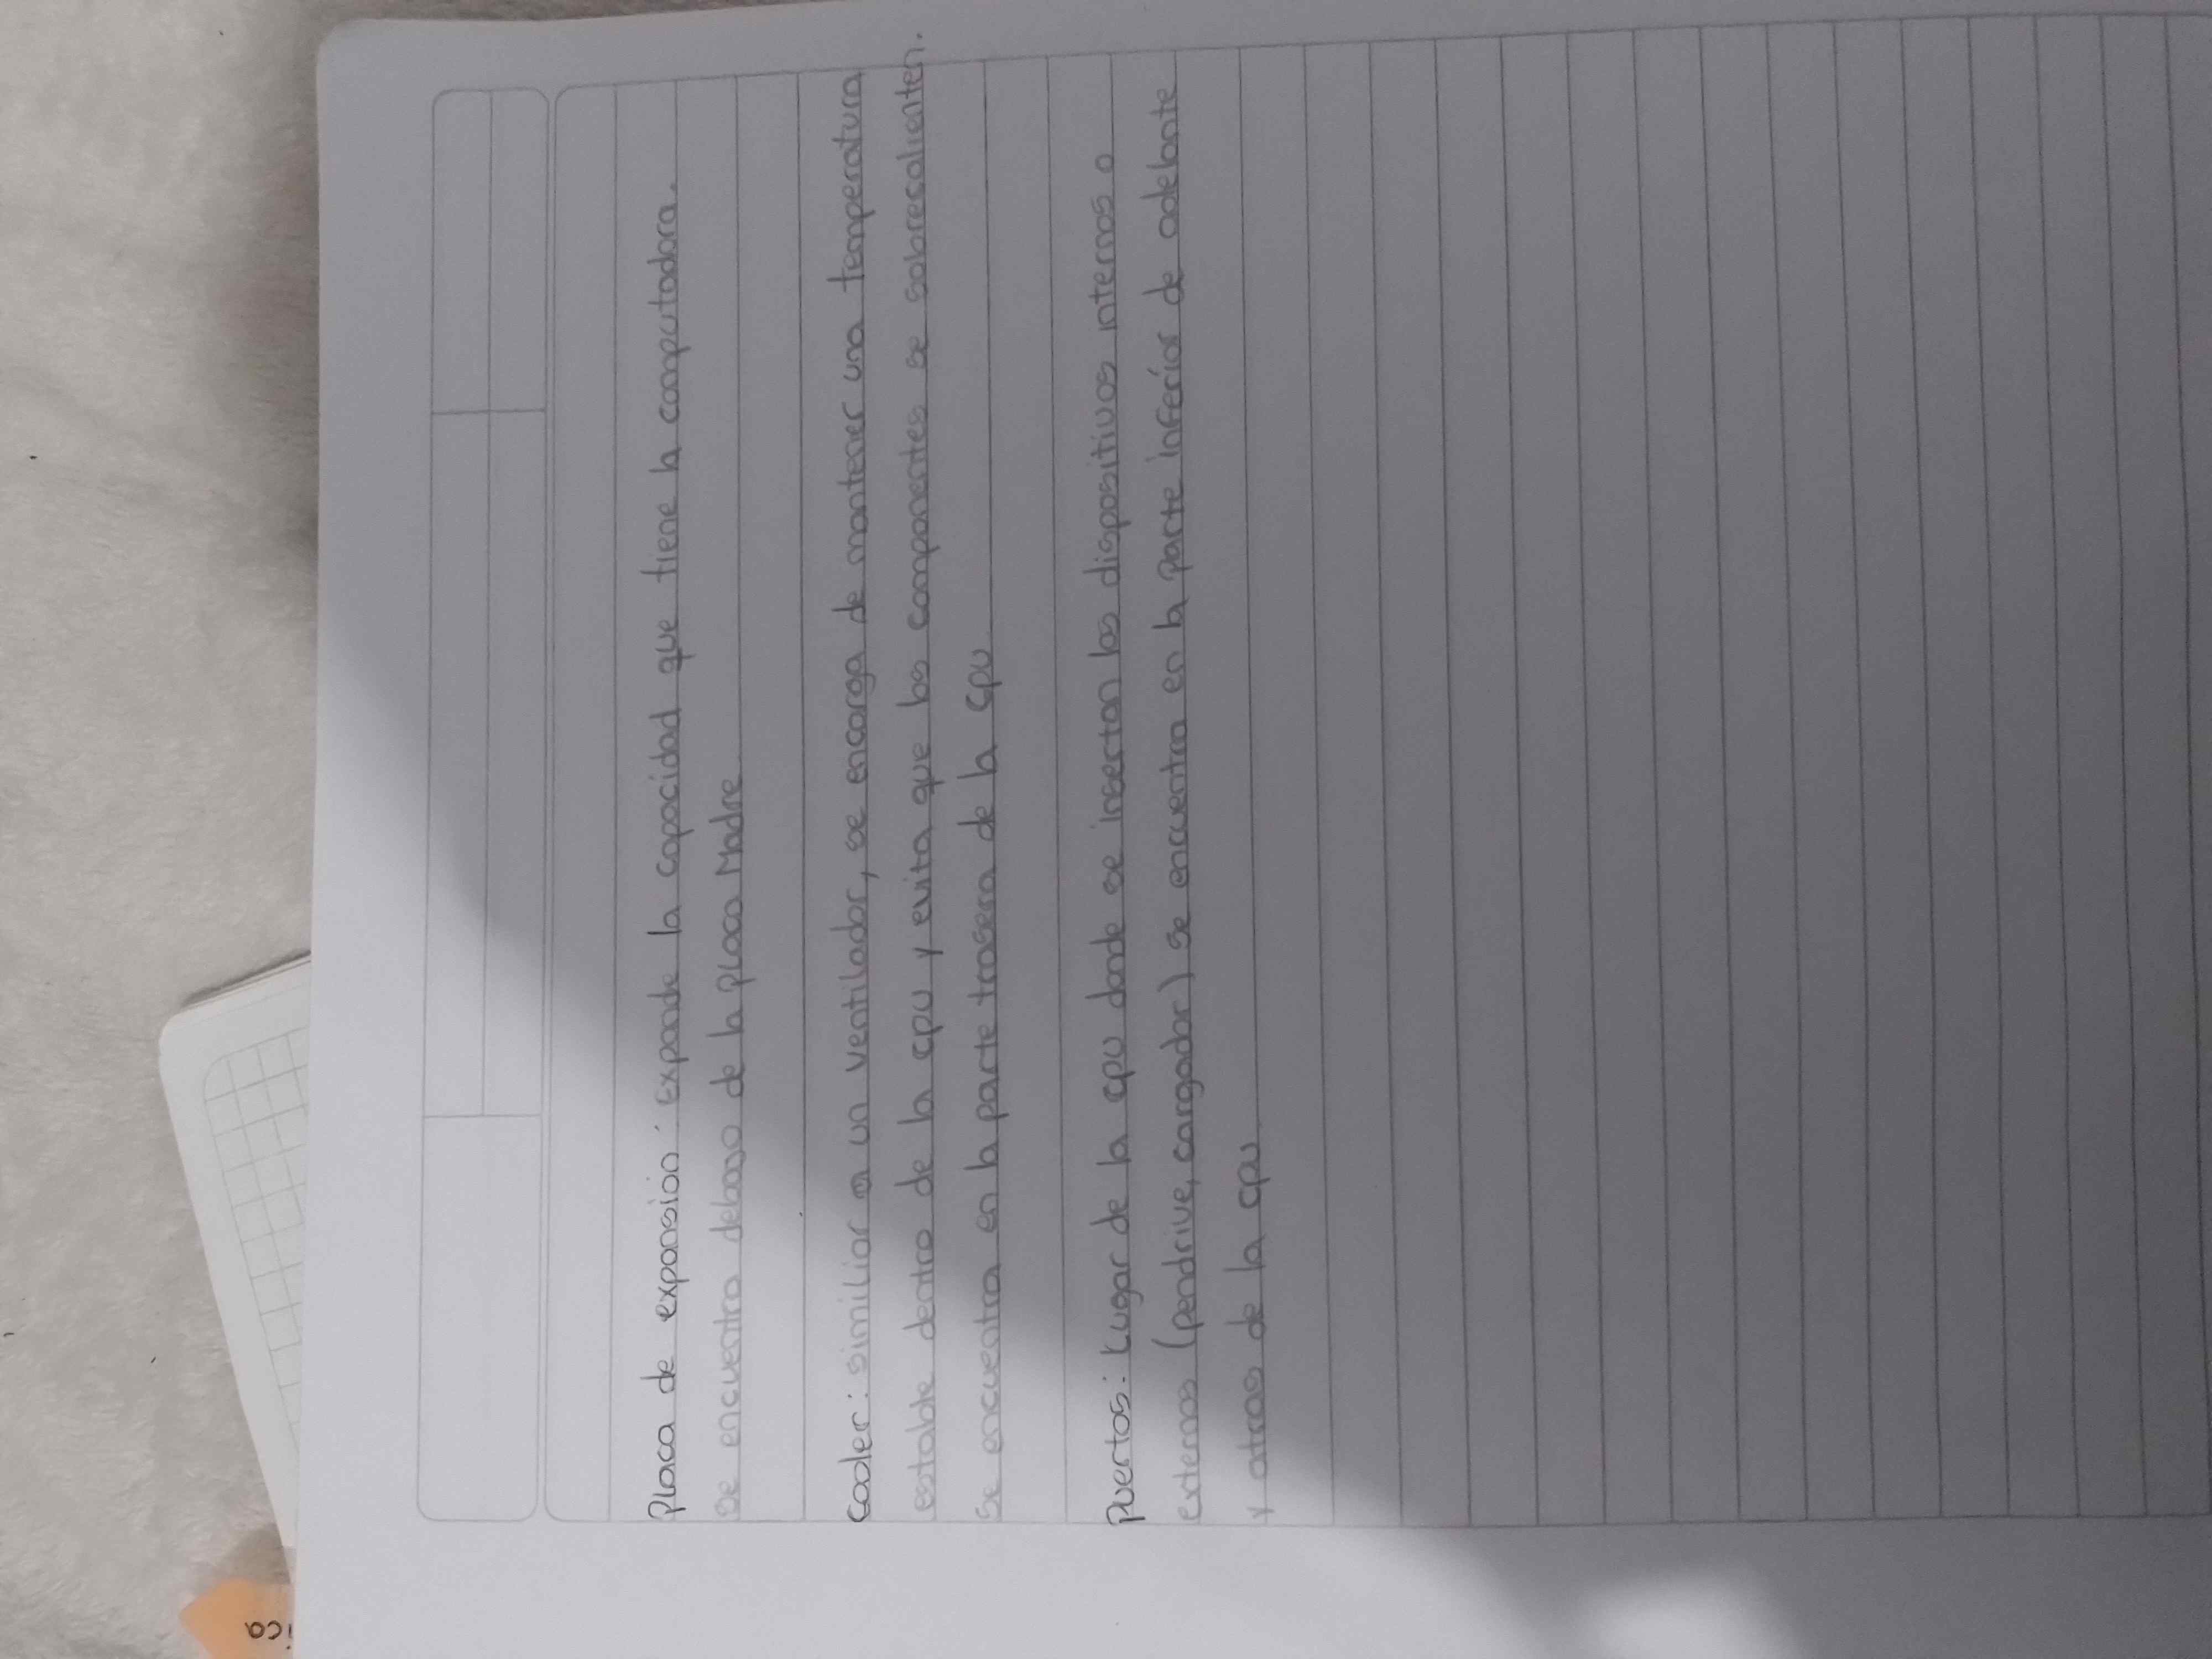 Placa de expansión: expande la capacidad que tiene la computadora.
se encuentra debajo de la placa Madre
Cooler: similiar a un ventilador, se encarga de mantener una temperatura
estable dentro de la cpu y evita que los componentes se sobrecalienten.
Se encuentra en la parte trasera de la cpu
Puertos: Lugar de la cpu donde se insertan los dispositivos internos o
externos (pendrive, cargador) se encuentra en la parte inferior de adelante
y atras de la cpu
ica